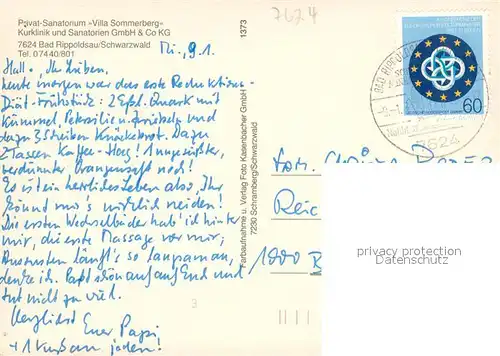 Privat-Sanatorium »Villa Sommerberg«
Kurklinik und Sanatorien GmbH & Co KG
7624 Bad Rippoldsau/Schwarzwald
Tel. 07440/801
7624
Mi., 9.1.
Hallo, Ihr Lieben,
heute morgen war das erste Reduktions-
Diät-Frühstück: 2 Eßl. Quark mit
Kümmel, Petersilie u. Zwiebeln und
dazu 3 Scheiben Knäckebrot. Dazu
2 Tassen Kaffee-Hag! 1 ungesüßter,
verdünnter Orangensaft noch!
Es ist ein herrliches Leben also, Ihr
könnt mir's wirklich neiden!
Die ersten Wechselbäder hab' ich hinter
mir, die erste Massage vor mir,
Ansonsten läuft's so langsam an,
denke ich. Paßt schön auf auf Euch und
tut nicht zu viel.
Herzlichst Euer Papi
+ 1 Kuß an jeden!
1373
Farbaufnahme u. Verlag Foto Kasenbacher GmbH
7230 Schramberg/Schwarzwald
60
BAD RIPPOLDSAU
7624
Fam.
1000
3
privacy protection
Datenschutz